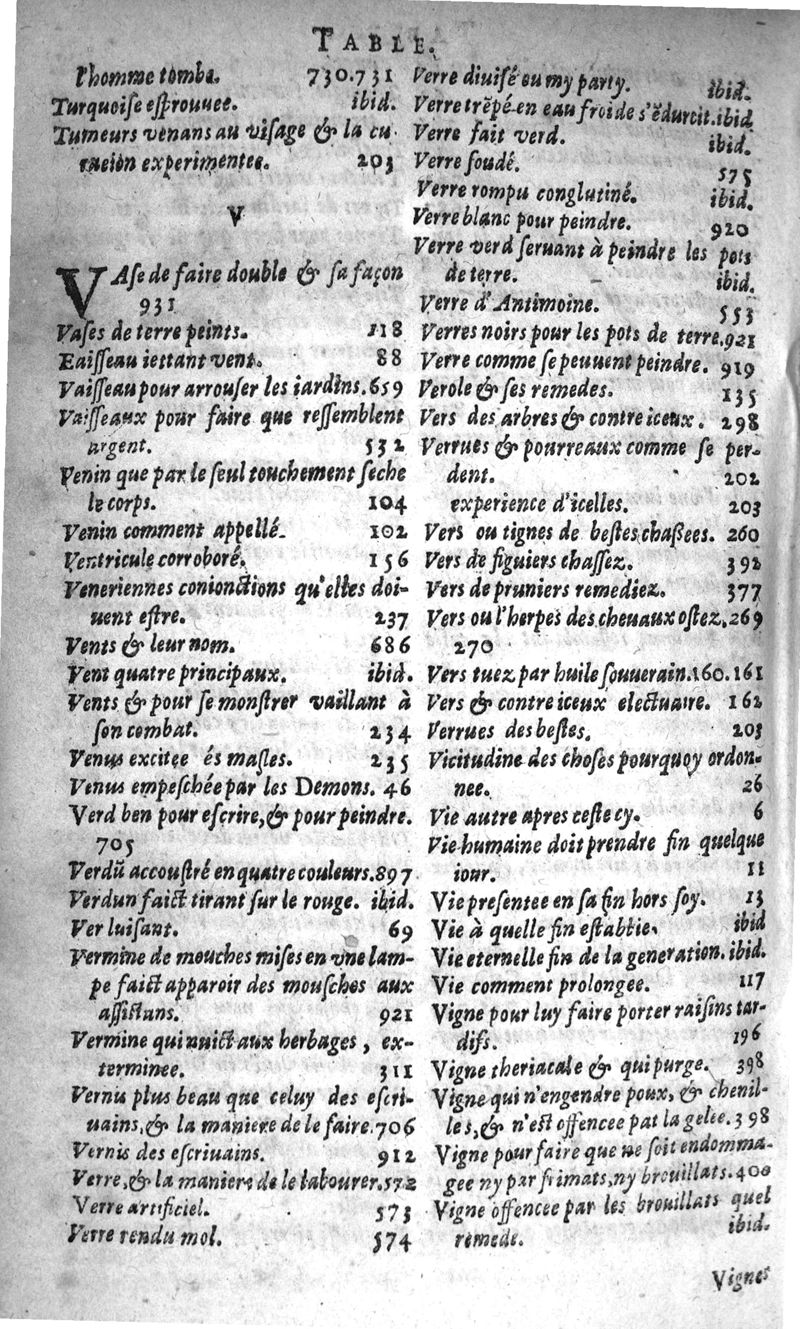 TABLE.
l'homme tombe. 730.731
Turquoise esprouuee. ibid.
Tumeurs venans au visage & la cu
racion experimentee. 203
V
VAse de faire double & sa façon
931
Vases de terre peints. 118
Eaisseau iettant vent. 88
Vaisseau pour arrouser les iardins. 659
Vaisseaux pour faire que ressemblent
argent. 532
Venin que par le seul touchement seche
le corps. 104
Venin comment appellé. 102
Ventricule corroboré. 156
Veneriennes conionctions qu'elles doi-
uent estre. 237
Vents & leur nom. 686
Vent quatre principaux. ibid.
Vents & pour se monstrer vaillant à
son combat. 234
Venus excitee és masles. 235
Venus empeschée par les Demons. 46
Verd ben pour escrire, & pour peindre.
705
Verdũ accoustré en quatre couleurs. 897
Verdun faict tirant sur le rouge. ibid.
Ver luisant. 69
Vermine de mouches mises en vne lam-
pe faict apparoir des mousches aux
assistans. 921
Vermine qui nuict aux herbages, ex-
terminee. 311
Vernis plus beau que celuy des escri-
uains, & la maniere de le faire. 706
Vernis des escriuains. 912
Verre, & la maniere de le labourer. 572
Verre artificiel. 573
Verre rendu mol. 574
Verre diuisé ou my party. ibid.
Verre trẽpé en eau froide s'ẽdurcit. ibid
Verre fait verd. ibid.
Verre soudé. 575
Verre rompu conglutiné. ibid.
Verre blanc pour peindre. 920
Verre verd seruant à peindre les pots
de terre. ibid.
Verre d'Antimoine. 553
Verres noirs pour les pots de terre. 921
Verre comme se peuuent peindre. 919
Verole & ses remedes. 135
Vers des arbres & contre iceux. 298
Verrues & pourreaux comme se per-
dent. 202
experience d'icelles. 203
Vers ou tignes de bestes chaßees. 260
Vers de figuiers chassez. 392
Vers de pruniers remediez. 377
Vers ou l'herpes des cheuaux ostez. 269
270
Vers tuez par huile souuerain. 160. 161
Vers & contre iceux electuaire. 162
Verrues des bestes. 203
Vicitudine des choses pourquoy ordon-
nee. 26
Vie autre apres ceste cy. 6
Vie humaine doit prendre fin quelque
iour. 11
Vie presentee en sa fin hors soy. 13
Vie à quelle fin establie. ibid
Vie eternelle fin de la generation. ibid.
Vie comment prolongee. 117
Vigne pour luy faire porter raisins tar-
difs. 196
Vigne theriacale & qui purge. 398
Vigne qui n'engendre poux, & chenil-
les, & n'est offencee pat la gelee. 398
Vigne pour faire que ne soit endomma-
gee ny par frimats, ny brouillats. 400
Vigne offencee par les brouillats quel
remede. ibid.
Vignes